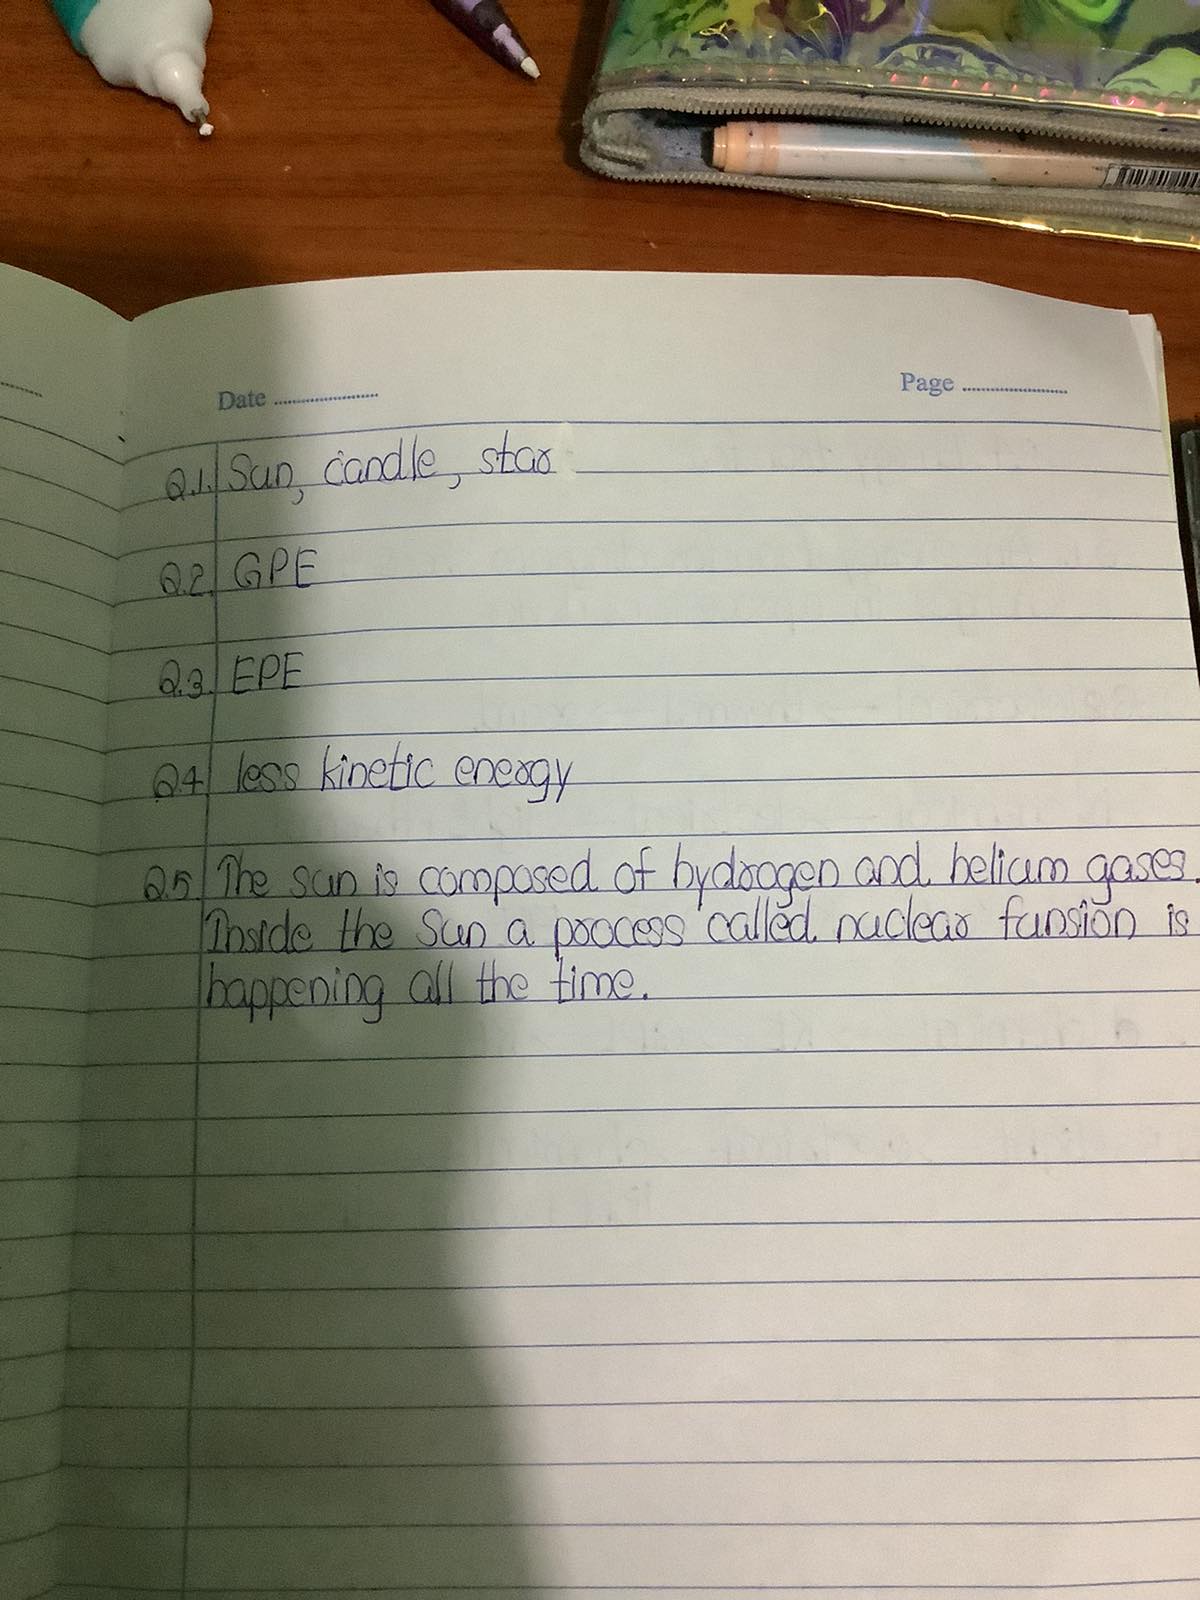 Date ....................
Page ....................
Q.1. Sun, candle, star
Q.2. GPE
Q.3. EPE
Q.4. less kinetic energy
Q.5. The sun is composed of hydrogen and helium gases.
Inside the Sun a process called nuclear funsion is
happening all the time.